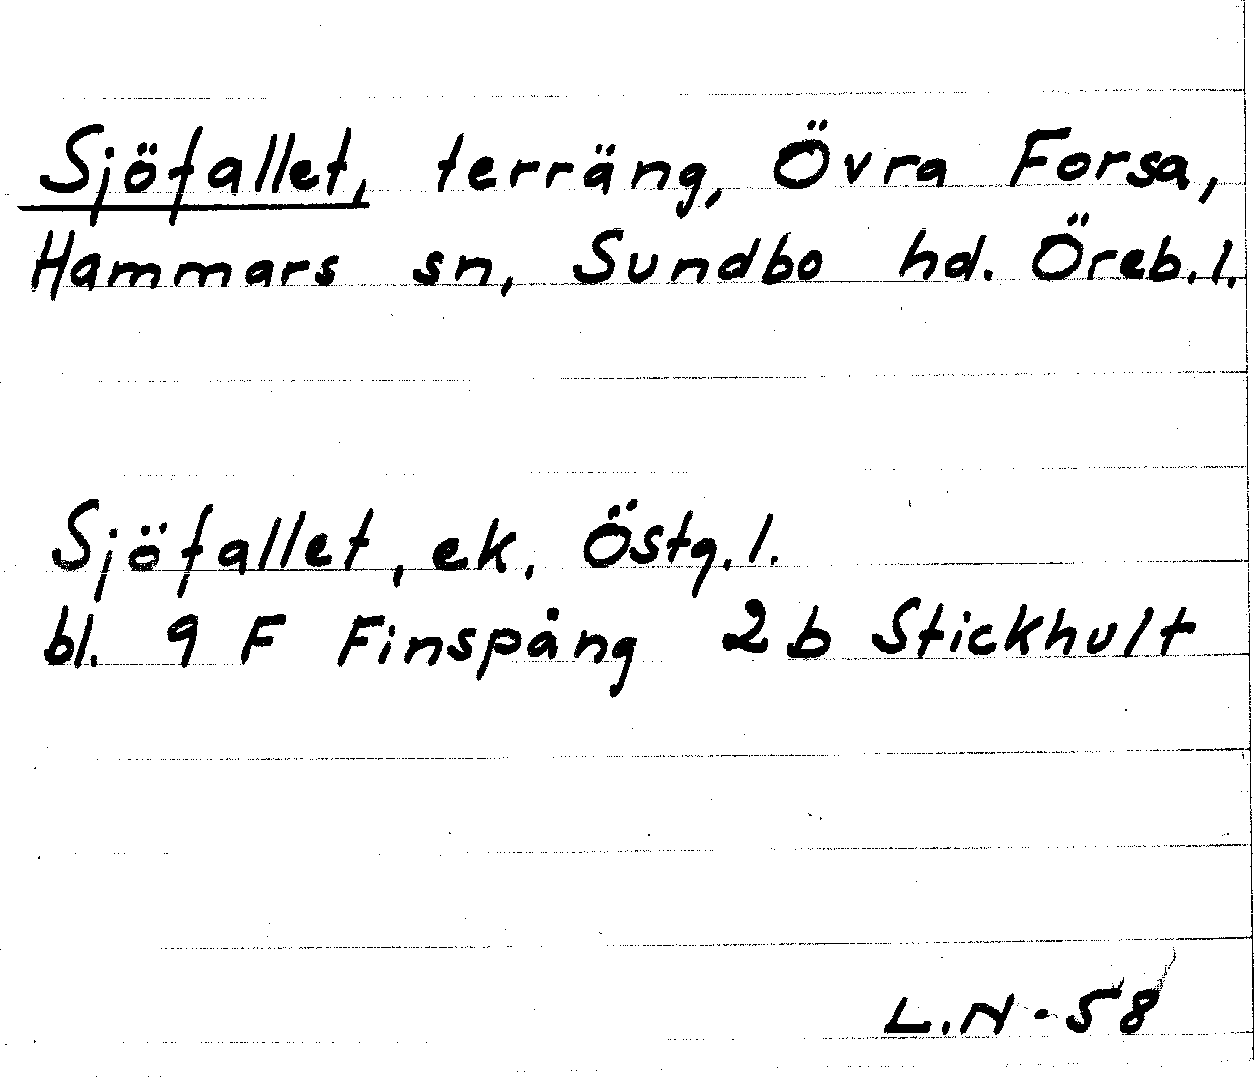 Sjöfallet, terräng, Övra Forsa,
Hammars sn, Sundbo hd. Öreb.l.
Sjöfallet, ek, Östg.l.
bl. 9 F Finspång 2b Stickhult
L.N-58